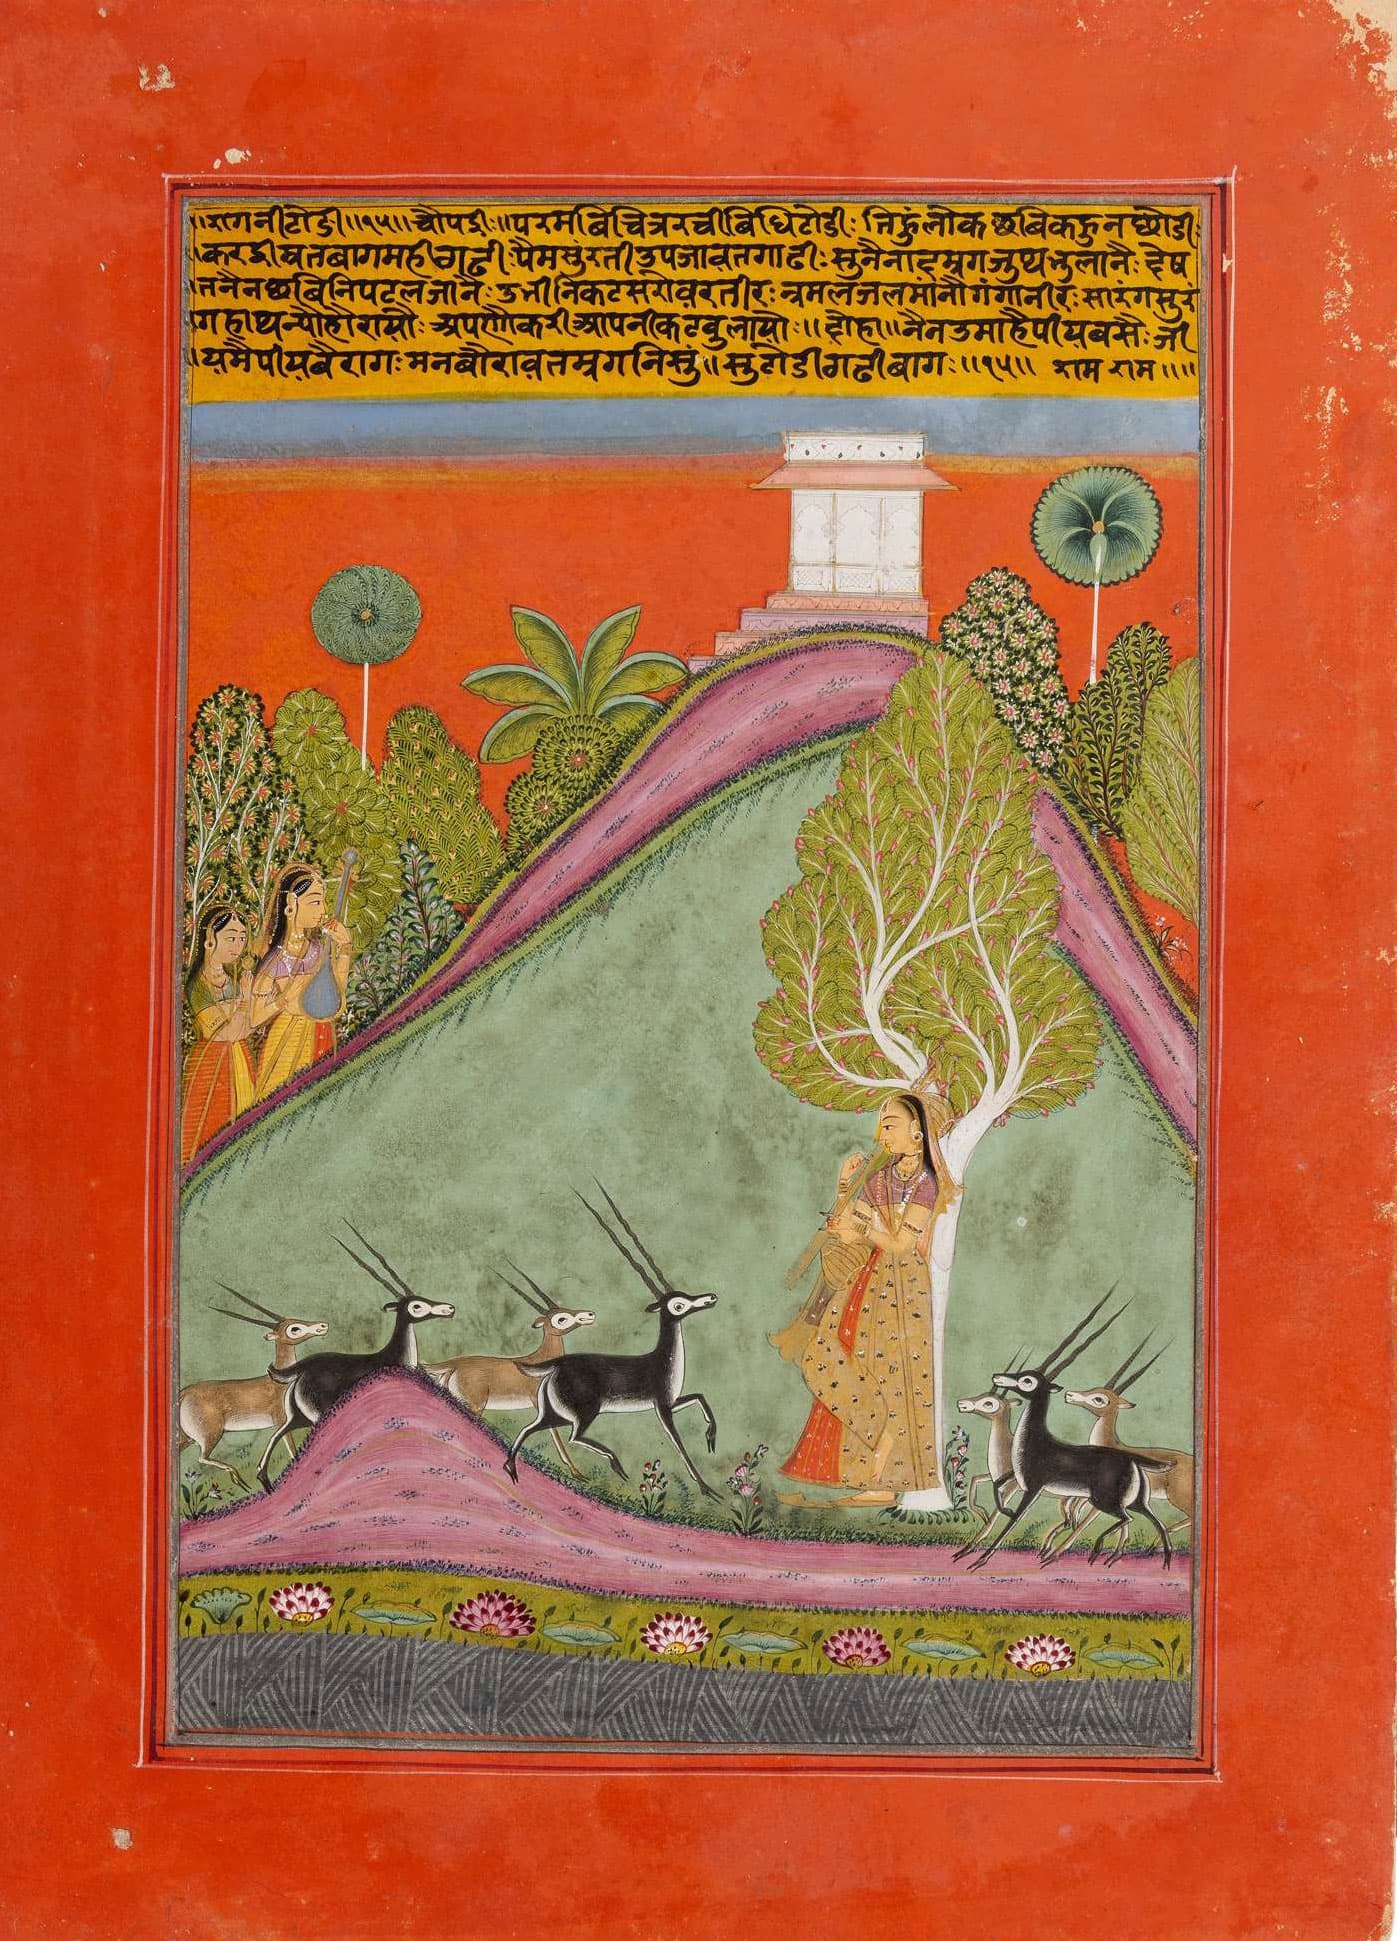 ॥रागनीटोडी॥१५॥चौपई॥परमबिचित्ररचीबिधिटोडी: तिहुंलोकछबिकहुनछोडी:
करईषतबागमहीगढी: पैमसुंरतीउपजावतगाढी: सुनैनादम्रगजुथभुलानै: देष
तनैनछबिनिपटलजानै: उभीनिकटसरोवरतीर: न्रमलजलमांनौगंगानीर: सारंगसुर
गहाथ आपनीकटबुलायौ: ॥दोहा॥नैनउमाहैपीयबसै: जी
यमैपीयबैराग: मनबौरावतम्रगनिसु॥सुटोडीगढीबाग: ॥१५॥ राम राम॥॥